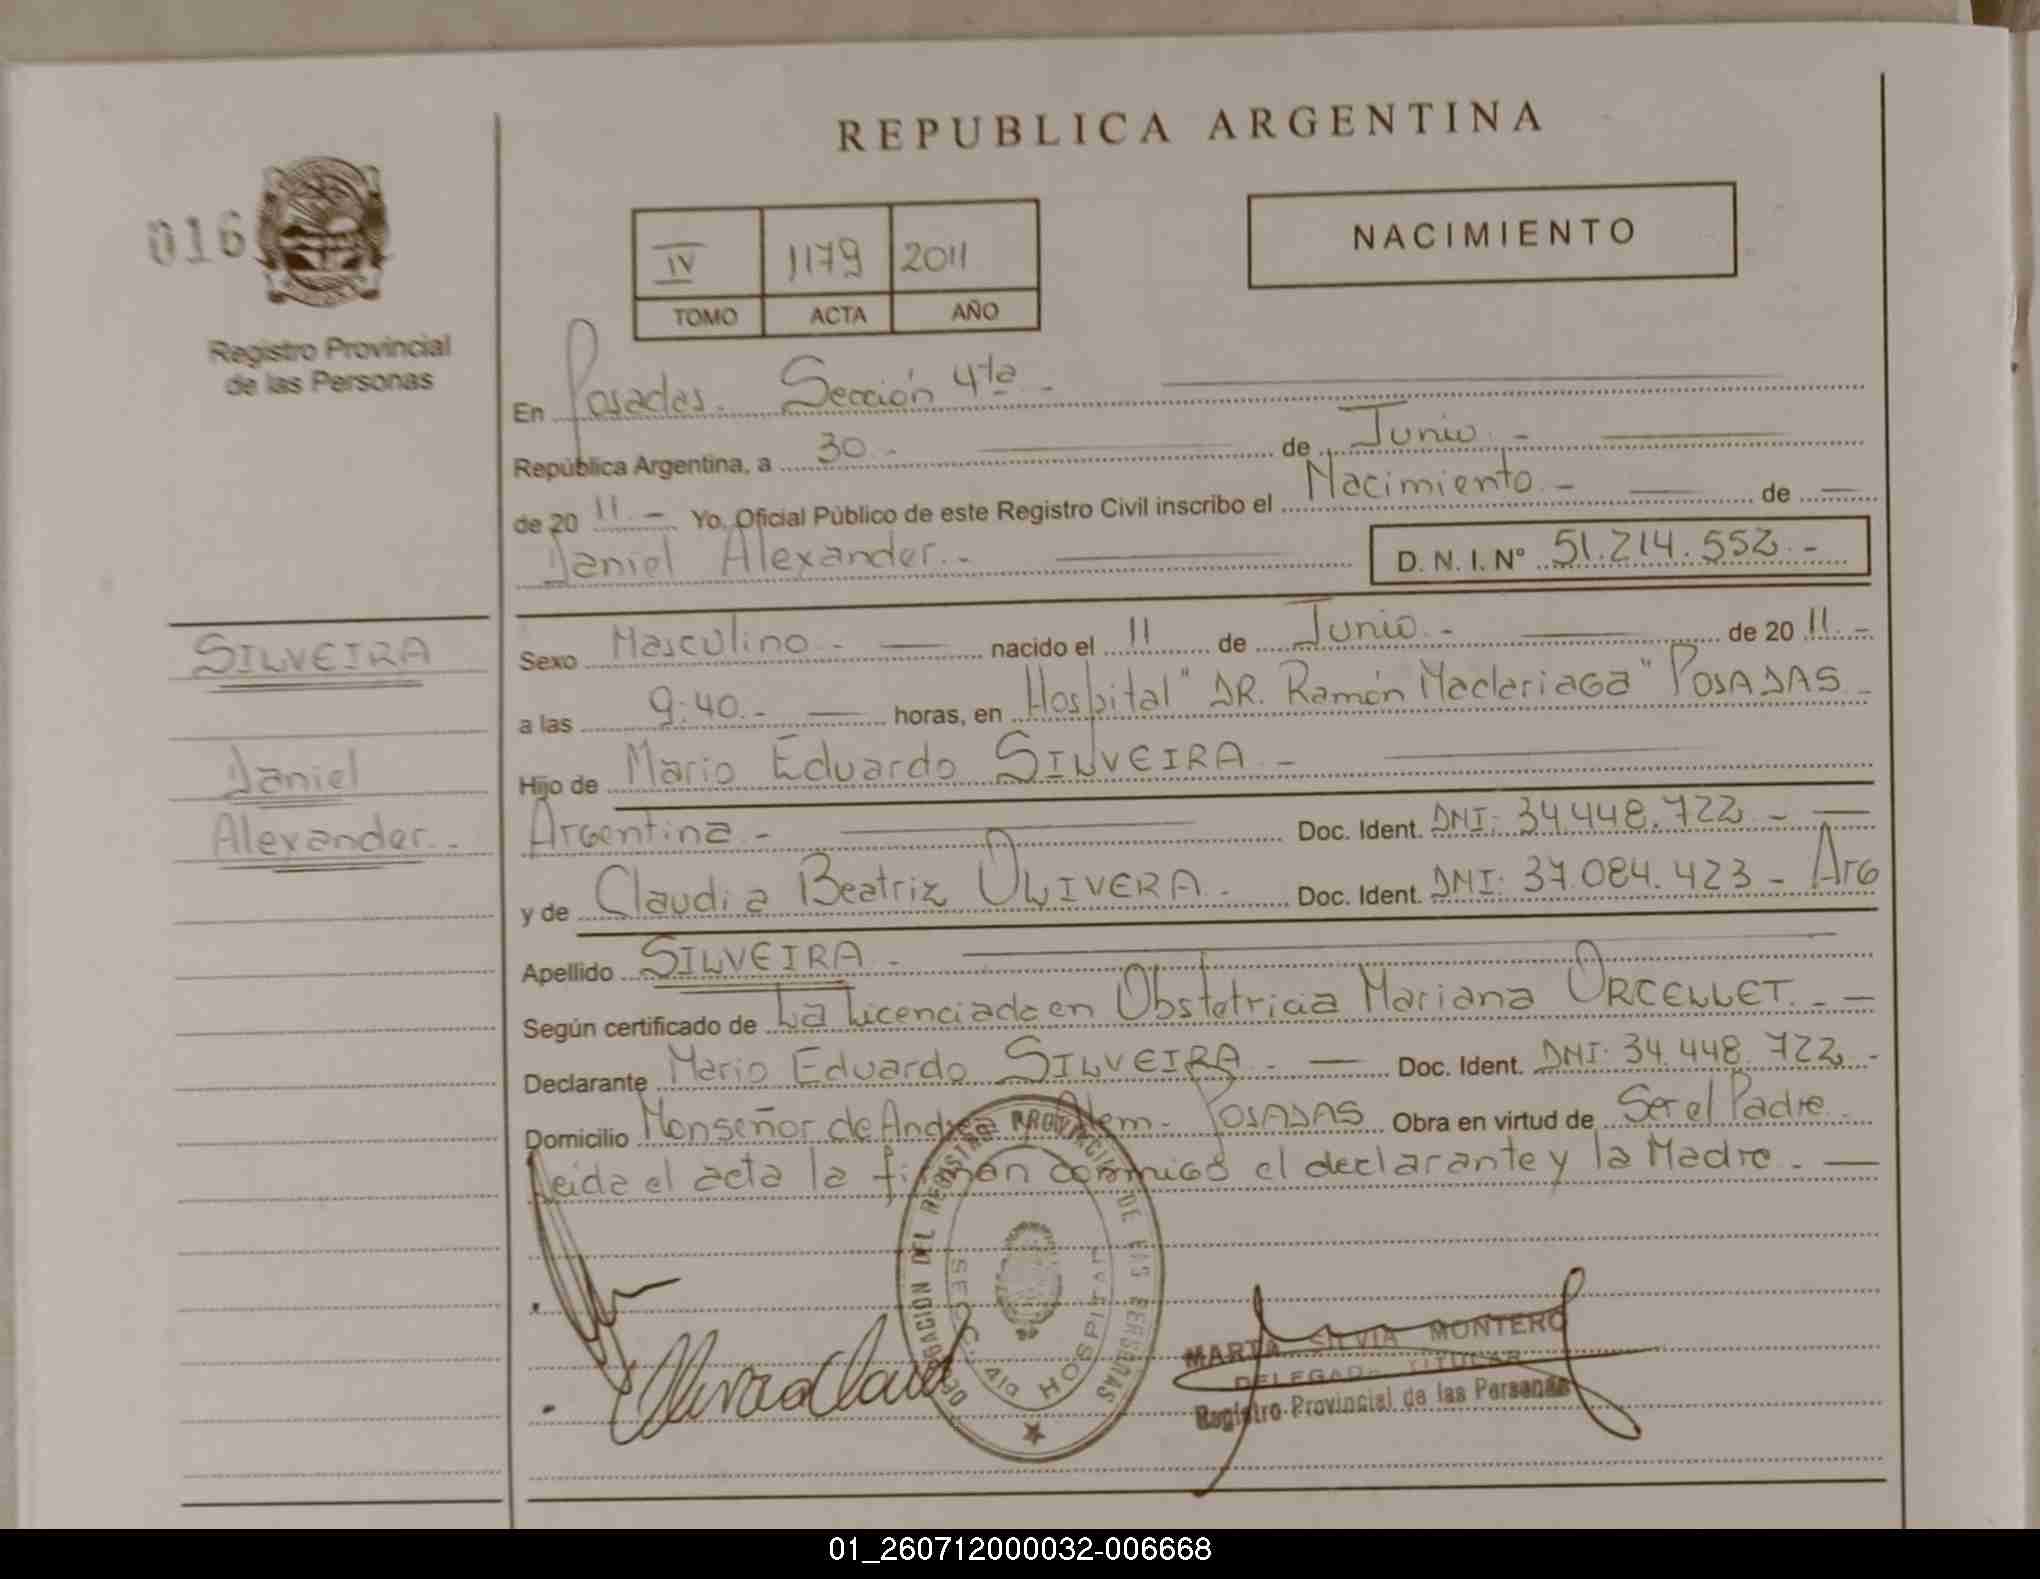 REPUBLICA ARGENTINA
016
Registro Provincial
de las Personas
IV 1179 2011
TOMO ACTA AÑO
NACIMIENTO
En Posadas. Sección 4ta -
República Argentina, a 30.- de Junio.-
de 20 11.- Yo, Oficial Público de este Registro Civil inscribo el Nacimiento.- de
Daniel Alexander.- D. N. I. Nº 51.214.552.-
SILVEIRA
Daniel
Alexander.-
Sexo Masculino.- nacido el 11 de Junio.- de 20 11.-
a las 9:40.- horas, en Hospital "DR. Ramón Madariaga" POSADAS
Hijo de Mario Eduardo SILVEIRA.-
Argentina.- Doc. Ident. DNI: 34.448.722.-
y de Claudia Beatriz OLIVERA.- Doc. Ident. DNI: 37.084.423 - Arg
Apellido SILVEIRA.-
Según certificado de La Licenciada en Obstetricia Mariana ORCELLET.-
Declarante Mario Eduardo SILVEIRA.- Doc. Ident. DNI: 34.448.722.-
Domicilio Monseñor de Andrea Alem- POSADAS Obra en virtud de Ser el Padre
Leida el acta la firman conmigo el declarante y la Madre.-
DELEGACION DEL REGISTRO PROVINCIAL DE LAS PERSONAS
SECC. 4ta HOSPITAL
MARTA SILVIA MONTERO
DELEGADA TITULAR
Registro Provincial de las Personas
01_260712000032-006668